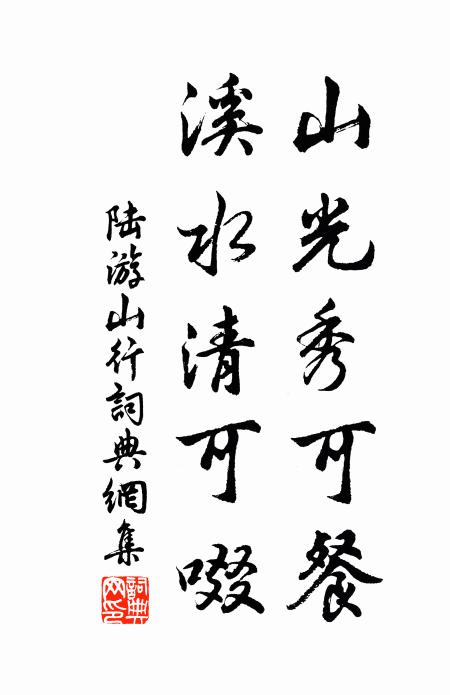 山光秀可餐
溪水清可啜
陆游山行詞典網集
詞典網印